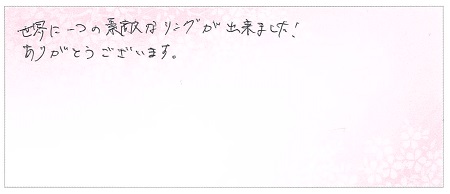 世界に一つの素敵なリングが出来ました!
ありがとうございます。